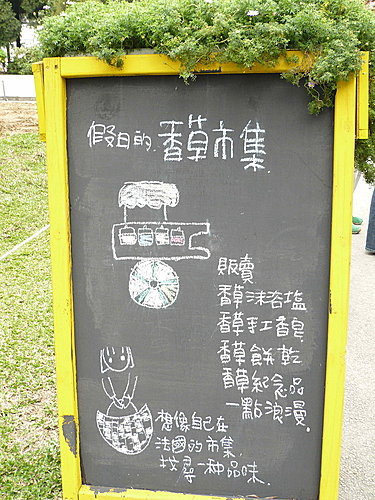 假日的香草市集
販賣
香草沐浴塩
香草手工香皂
香草餅乾
香草紀念品
一點浪漫.
想像自己在
法國的市集,
找尋一种品味.